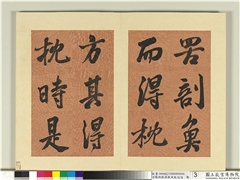 罢剖奐
而得枕
方其得
枕時是
國立故宮博物院